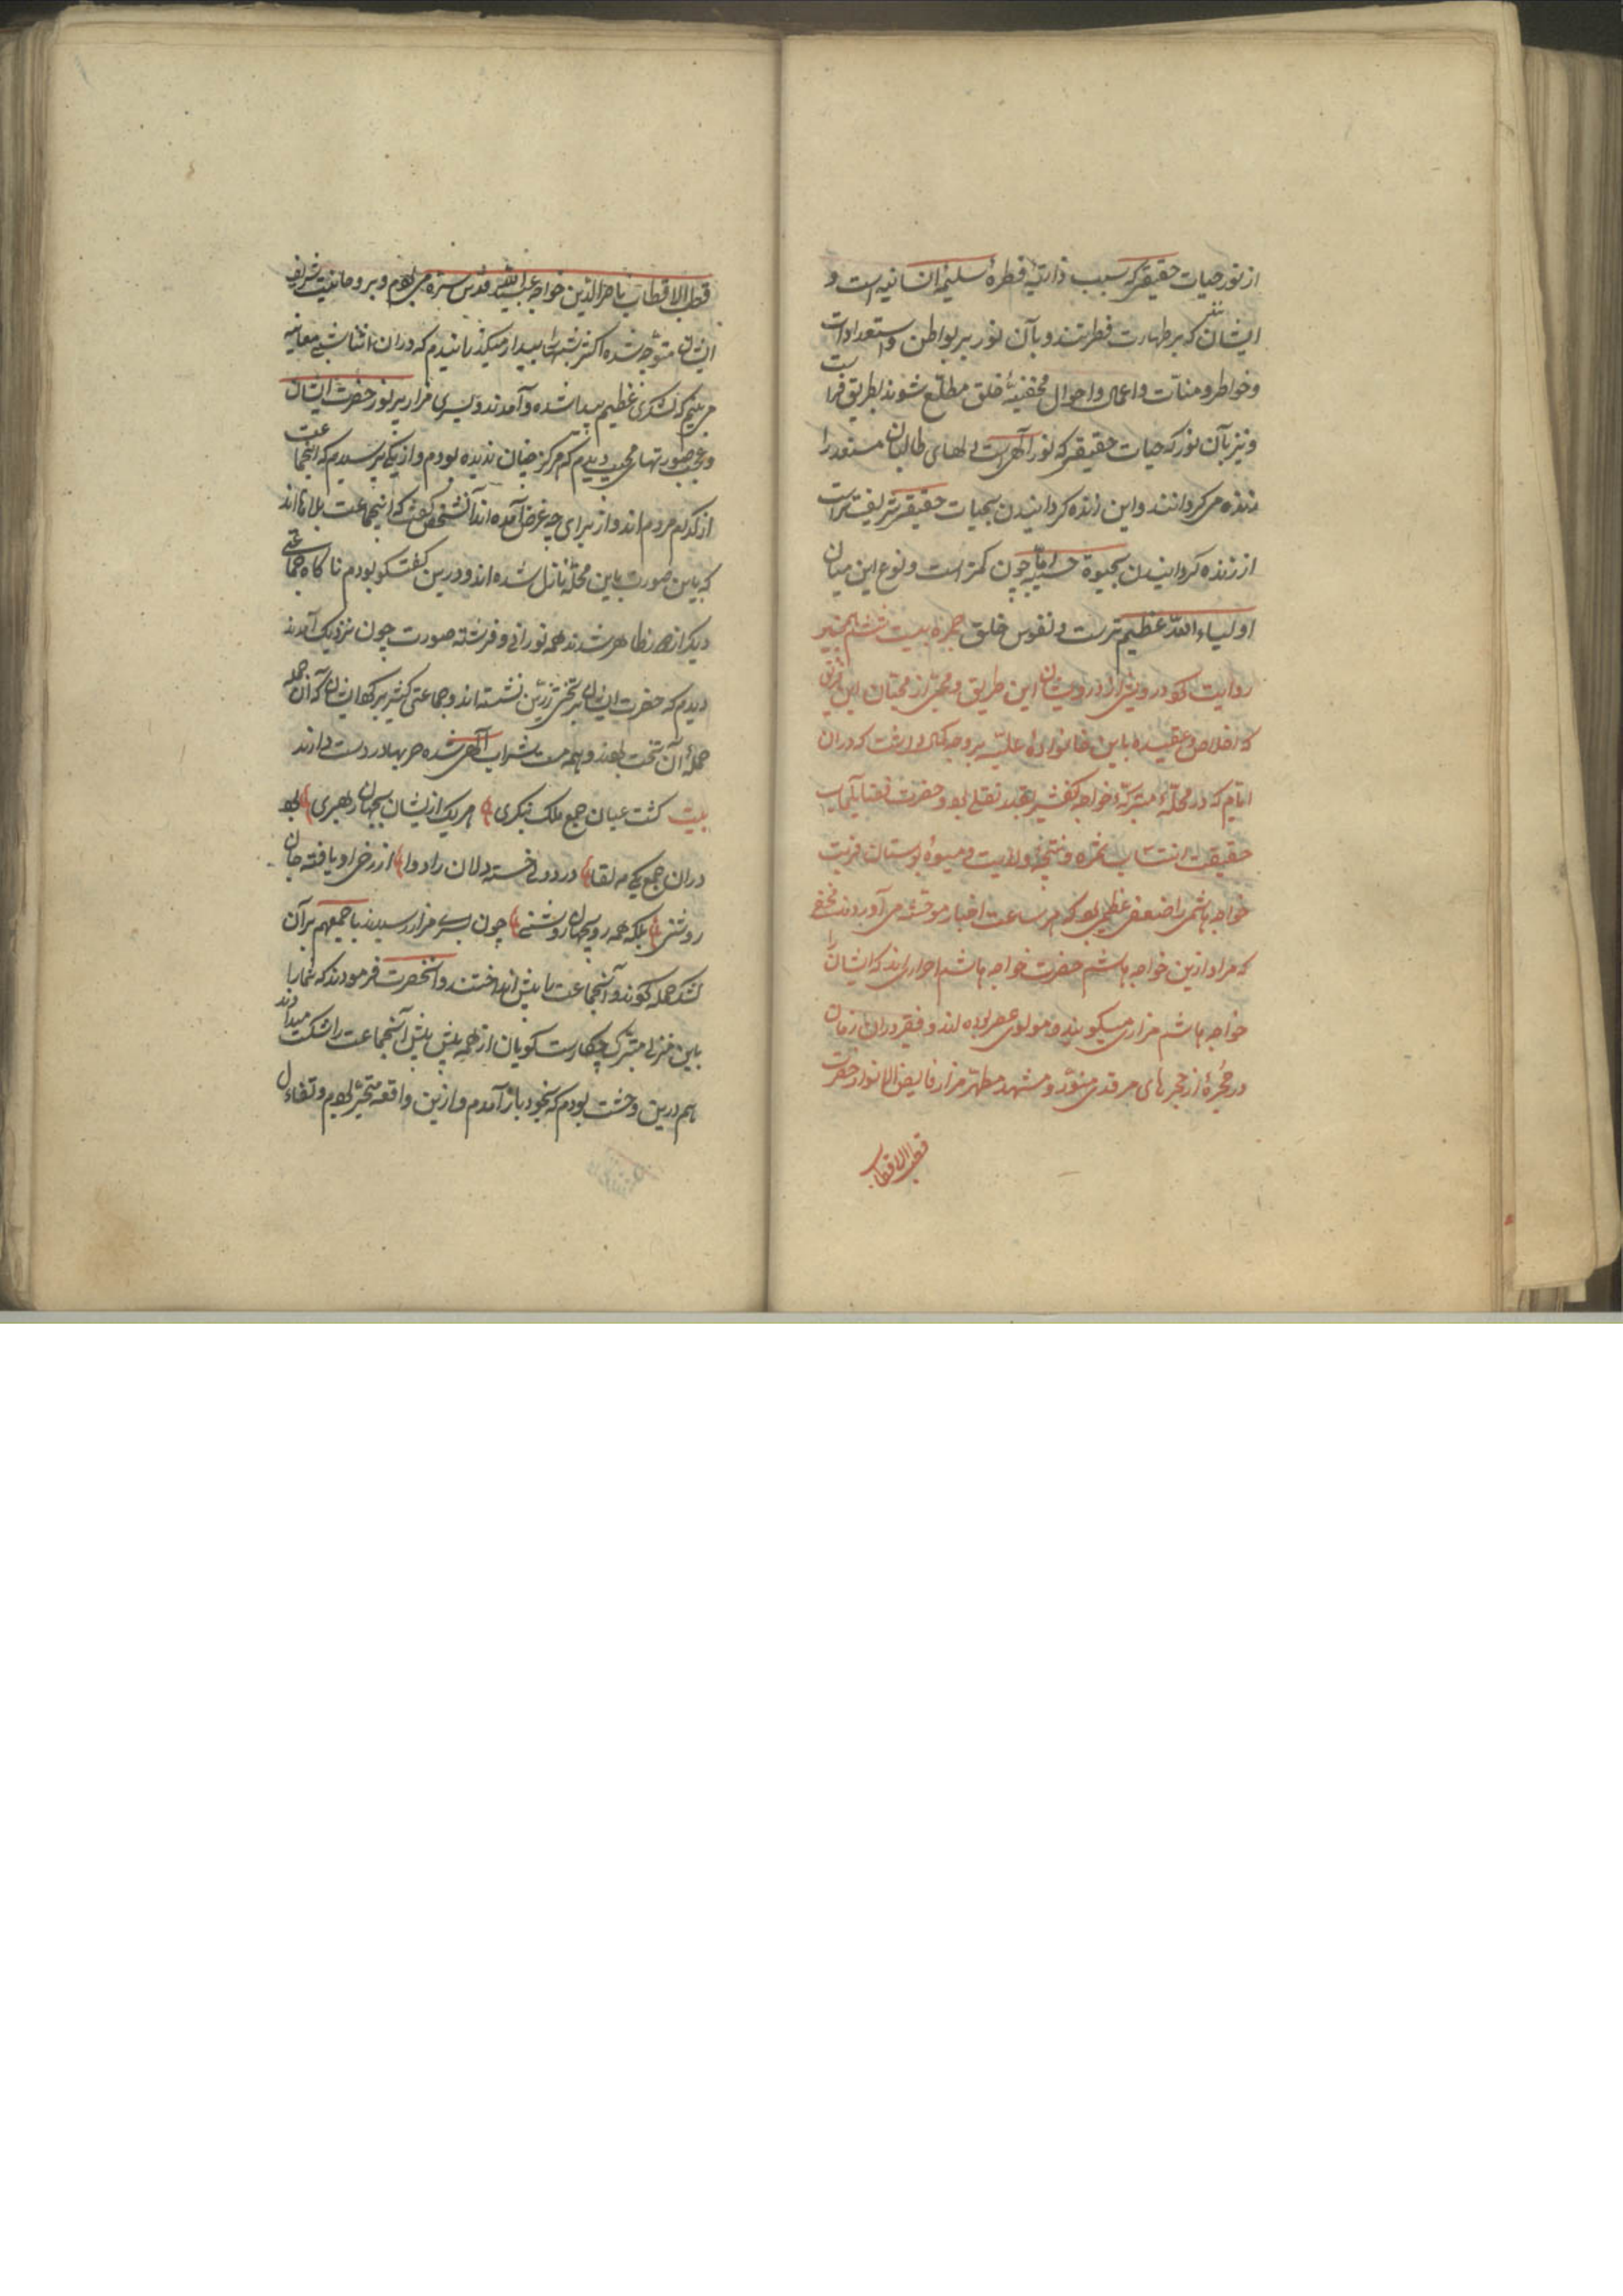 از نور حیات حقیقی که سبب ذاتیهٔ فطرهٔ سلیمهٔ انسانیه است و
ایشان که بر طهارت فطرتند و بآن نور بر بواطن و استعدادات
و خواطر و منیات و اعمال و احوال مخفیهٔ خلق مطلع شوند بطریق فراست
و نیز بآن نور که حیات حقیقی که نور آلهی است دلهای طالبان مستعد را
زنده می کردانند و این زنده کردانیدن بحیات حقیقی شریفتر است
از زنده کردانیدن بحیوة حسیه چون کمتر است وقوع این میان
اولیاء الله عظیم تر است در نفوس خلق حجره بیست ششم
روایت کرد درویشی از درویشان این طریق و محبی از محبان این فریق
که اخلاص و عقیده باین خانوادهٔ علیه بر وجه کمال داشت که دران
ایام که در محلهٔ متبرکهٔ خواجه کفشیر نقلی بود و حضرت
حقیقت انتساب ثمره و نتیجهٔ ولایت و میوهٔ بوستان قربت
خواجه هاشمی را ضعف عظیمی بود که هر ساعت اخبار موحشه می آوردند مخفی
که مراد ازین خواجه هاشم حضرت خواجه هاشم احراری اند که ایشان را
خواجه هاشم مزاری میگویند و مولوی عصر بوده اند و فقیر دران زمان
در حجرهٔ از حجرهای مرقد منور و مشهد مطهر مزار فایض الانوار حضرت
قطب الاقطاب
قطب الاقطاب ناصرالدین خواجه عبیدالله قدس سره می بودم و بروحانیت شریف
ایشان متوجه شده اکثر شبها بیدار میکذرانیدم که دران اثنا شبی معاینه
می بینم که لشکری عظیم پیدا شده و آمدند و بسوی مزار پر نور حضرت ایشان
و عجب صورتهای مهیب دیدم که هرکز چنان ندیده بودم و از یکی پرسیدم که اینجماعت
از کدام مردم اند و از برای چه غرض آمده اند آنشخص کفت که اینجماعت بلاها اند
که باین صورت باین محله نازل شده اند و درین کفتکو بودم ناکاه جماعتی
دیکر از ظاهر شدند همه نورانی و فرشته صورت چون نزدیک آمدند
دیدم که حضرت ایشان بر تختی زرین نشسته اند و جماعتی کثیر بر کرد ایشان که آن جمله
حملهٔ آن تخت بودند و همه مست شراب آلهی شده حربها در دست دارند
بیت کشت عیان جمع ملک پیکری هر یک ازیشان بجهان رهبری بود
دران جمع یکی مه لقا درد دل خسته دلان را دوا از رخ او یافته جان
روشنی بلکه همه روی جهان روشنی چون بسر مزار رسیدند با جمعهم بر آن
لشکر حمله کردند و آنجماعت را پیش انداختند و آنحضرت فرمودند که شما را
باین منزل متبرک چکارست کویان از همه پیش پیش آنجماعت را شکست میدادند
هم درین وحشت بودم که بخود باز آمدم و ازین واقعه متحیر بودم و تفاءل